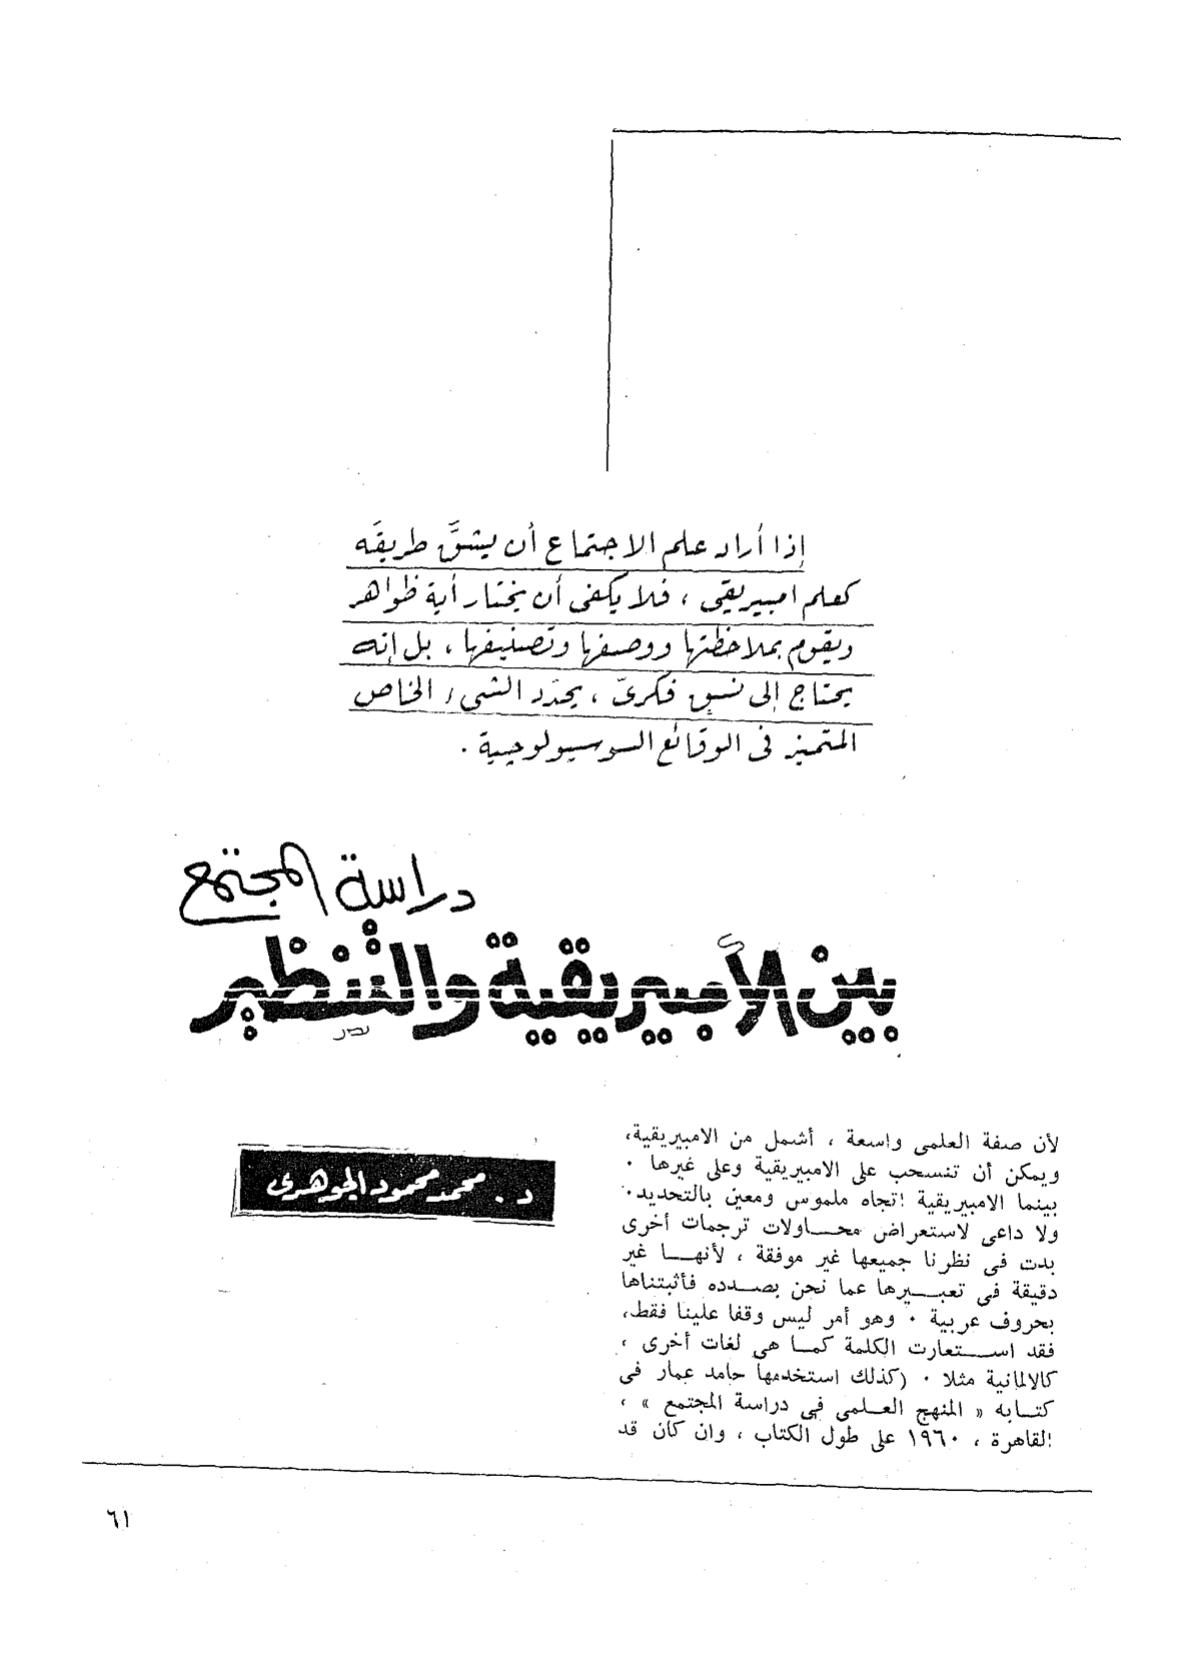 إذا أراد علم الاجتماع أن يشقَّ طريقَه
كعلم امبيريقى ، فلا يكفى أن يختار أية ظواهر
ويقوم بملاحظتها ووصفها وتصنيفها ، بل إنه
يحتاج إلى نسق فكرىّ ، يحدّد الشىء الخاص
المتميز فى الوقائع السوسيولوجية .
دراسة المجتمع
بين الأمبيريقية والتنظير
د . محمد محمود الجوهرى
لأن صفة العلمى واسعة ، أشمل من الامبيريقية،
ويمكن أن تنسحب على الامبيريقية وعلى غيرها ٠
بينما الامبيريقية اتجاه ملموس ومعين بالتحديد٠
ولا داعى لاستعراض محاولات ترجمات أخرى
بدت فى نظرنا جميعها غير موفقة ، لأنها غير
دقيقة فى تعبيرها عما نحن بصدده فأثبتناها
بحروف عربية ٠ وهو أمر ليس وقفا علينا فقط،
فقد استعارت الكلمة كما هى لغات أخرى ،
كالالمانية مثلا ٠ (كذلك استخدمها حامد عمار فى
كتابه « المنهج العلمى فى دراسة المجتمع » ،
القاهرة ، ١٩٦٠ على طول الكتاب ، وان كان قد
٦١